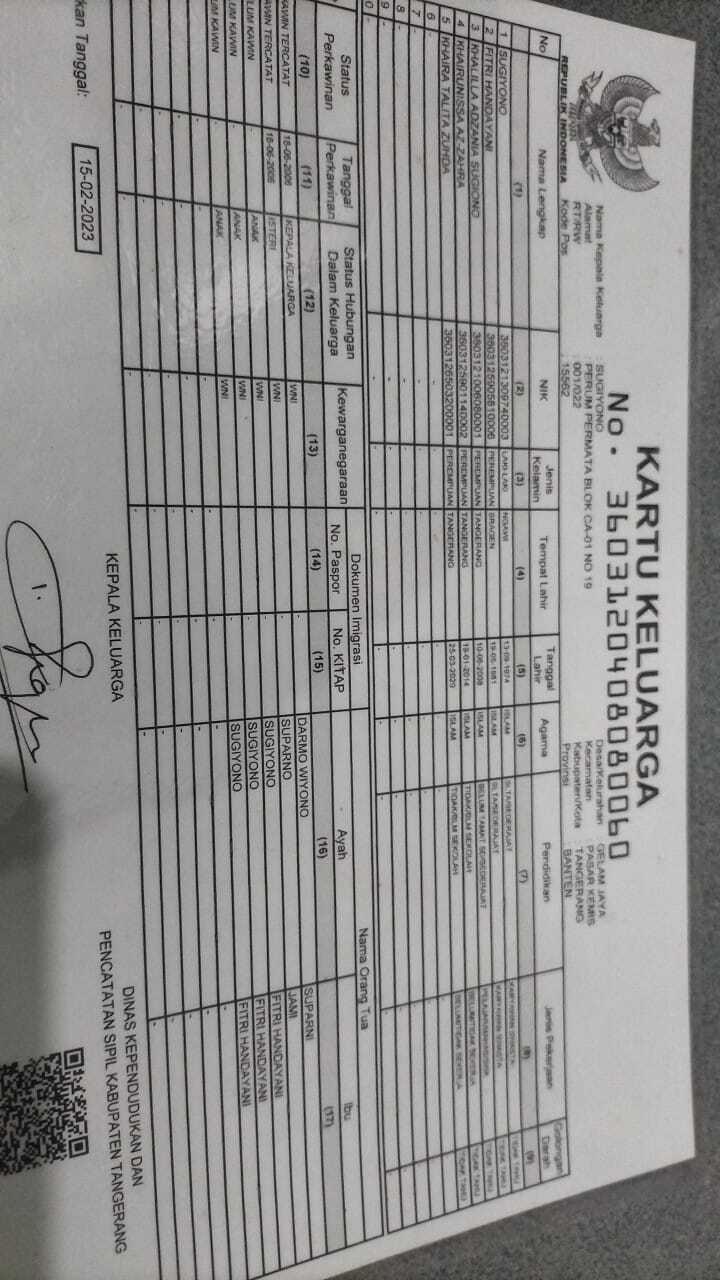 KARTU KELUARGA
No. 3603120408080060
REPUBLIK INDONESIA
Nama Kepala Keluarga : SUGIYONO
Alamat : PERUM PERMATA BLOK CA-01 NO 19
RT/RW : 001/022
Kode Pos : 15562
Desa/Kelurahan : GELAM JAYA
Kecamatan : PASAR KEMIS
Kabupaten/Kota : TANGERANG
Provinsi : BANTEN
No Nama Lengkap NIK Jenis Kelamin Tempat Lahir Tanggal Lahir Agama Pendidikan Jenis Pekerjaan Golongan Darah
(1) (2) (3) (4) (5) (6) (7) (8) (9)
1 SUGIYONO 3603121309740003 LAKI-LAKI NGAWI 13-09-1974 ISLAM SLTA/SEDERAJAT KARYAWAN SWASTA TIDAK TAHU
2 FITRI HANDAYANI 3603125905810006 PEREMPUAN SRAGEN 19-05-1981 ISLAM SLTA/SEDERAJAT KARYAWAN SWASTA TIDAK TAHU
3 KHALILLA ADZANIA SUGIONO 3603121006080001 PEREMPUAN TANGERANG 10-06-2008 ISLAM BELUM TAMAT SD/SEDERAJAT PELAJAR/MAHASISWA TIDAK TAHU
4 KHAIRUNISSA AZ ZAHRA 3603125901140002 PEREMPUAN TANGERANG 19-01-2014 ISLAM TIDAK/BLM SEKOLAH BELUM/TIDAK BEKERJA TIDAK TAHU
5 KHAIRA TALITA ZUHDA 3603126503200001 PEREMPUAN TANGERANG 25-03-2020 ISLAM TIDAK/BLM SEKOLAH BELUM/TIDAK BEKERJA TIDAK TAHU
6 - - - - - - - - -
7 - - - - - - - - -
8 - - - - - - - - -
9 - - - - - - - - -
0 - - - - - - - - -
Status Perkawinan Tanggal Perkawinan Status Hubungan Dalam Keluarga Kewarganegaraan Dokumen Imigrasi Nama Orang Tua
No. Paspor No. KITAP Ayah Ibu
(10) (11) (12) (13) (14) (15) (16) (17)
KAWIN TERCATAT 18-06-2006 KEPALA KELUARGA WNI - - DARMO WIYONO SUPARNI
AWIN TERCATAT 18-06-2006 ISTERI WNI - - SUPARNO JAMI
LUM KAWIN - ANAK WNI - - SUGIYONO FITRI HANDAYANI
LUM KAWIN - ANAK WNI - - SUGIYONO FITRI HANDAYANI
UM KAWIN - ANAK WNI - - SUGIYONO FITRI HANDAYANI
kan Tanggal: 15-02-2023
KEPALA KELUARGA
DINAS KEPENDUDUKAN DAN
PENCATATAN SIPIL KABUPATEN TANGERANG